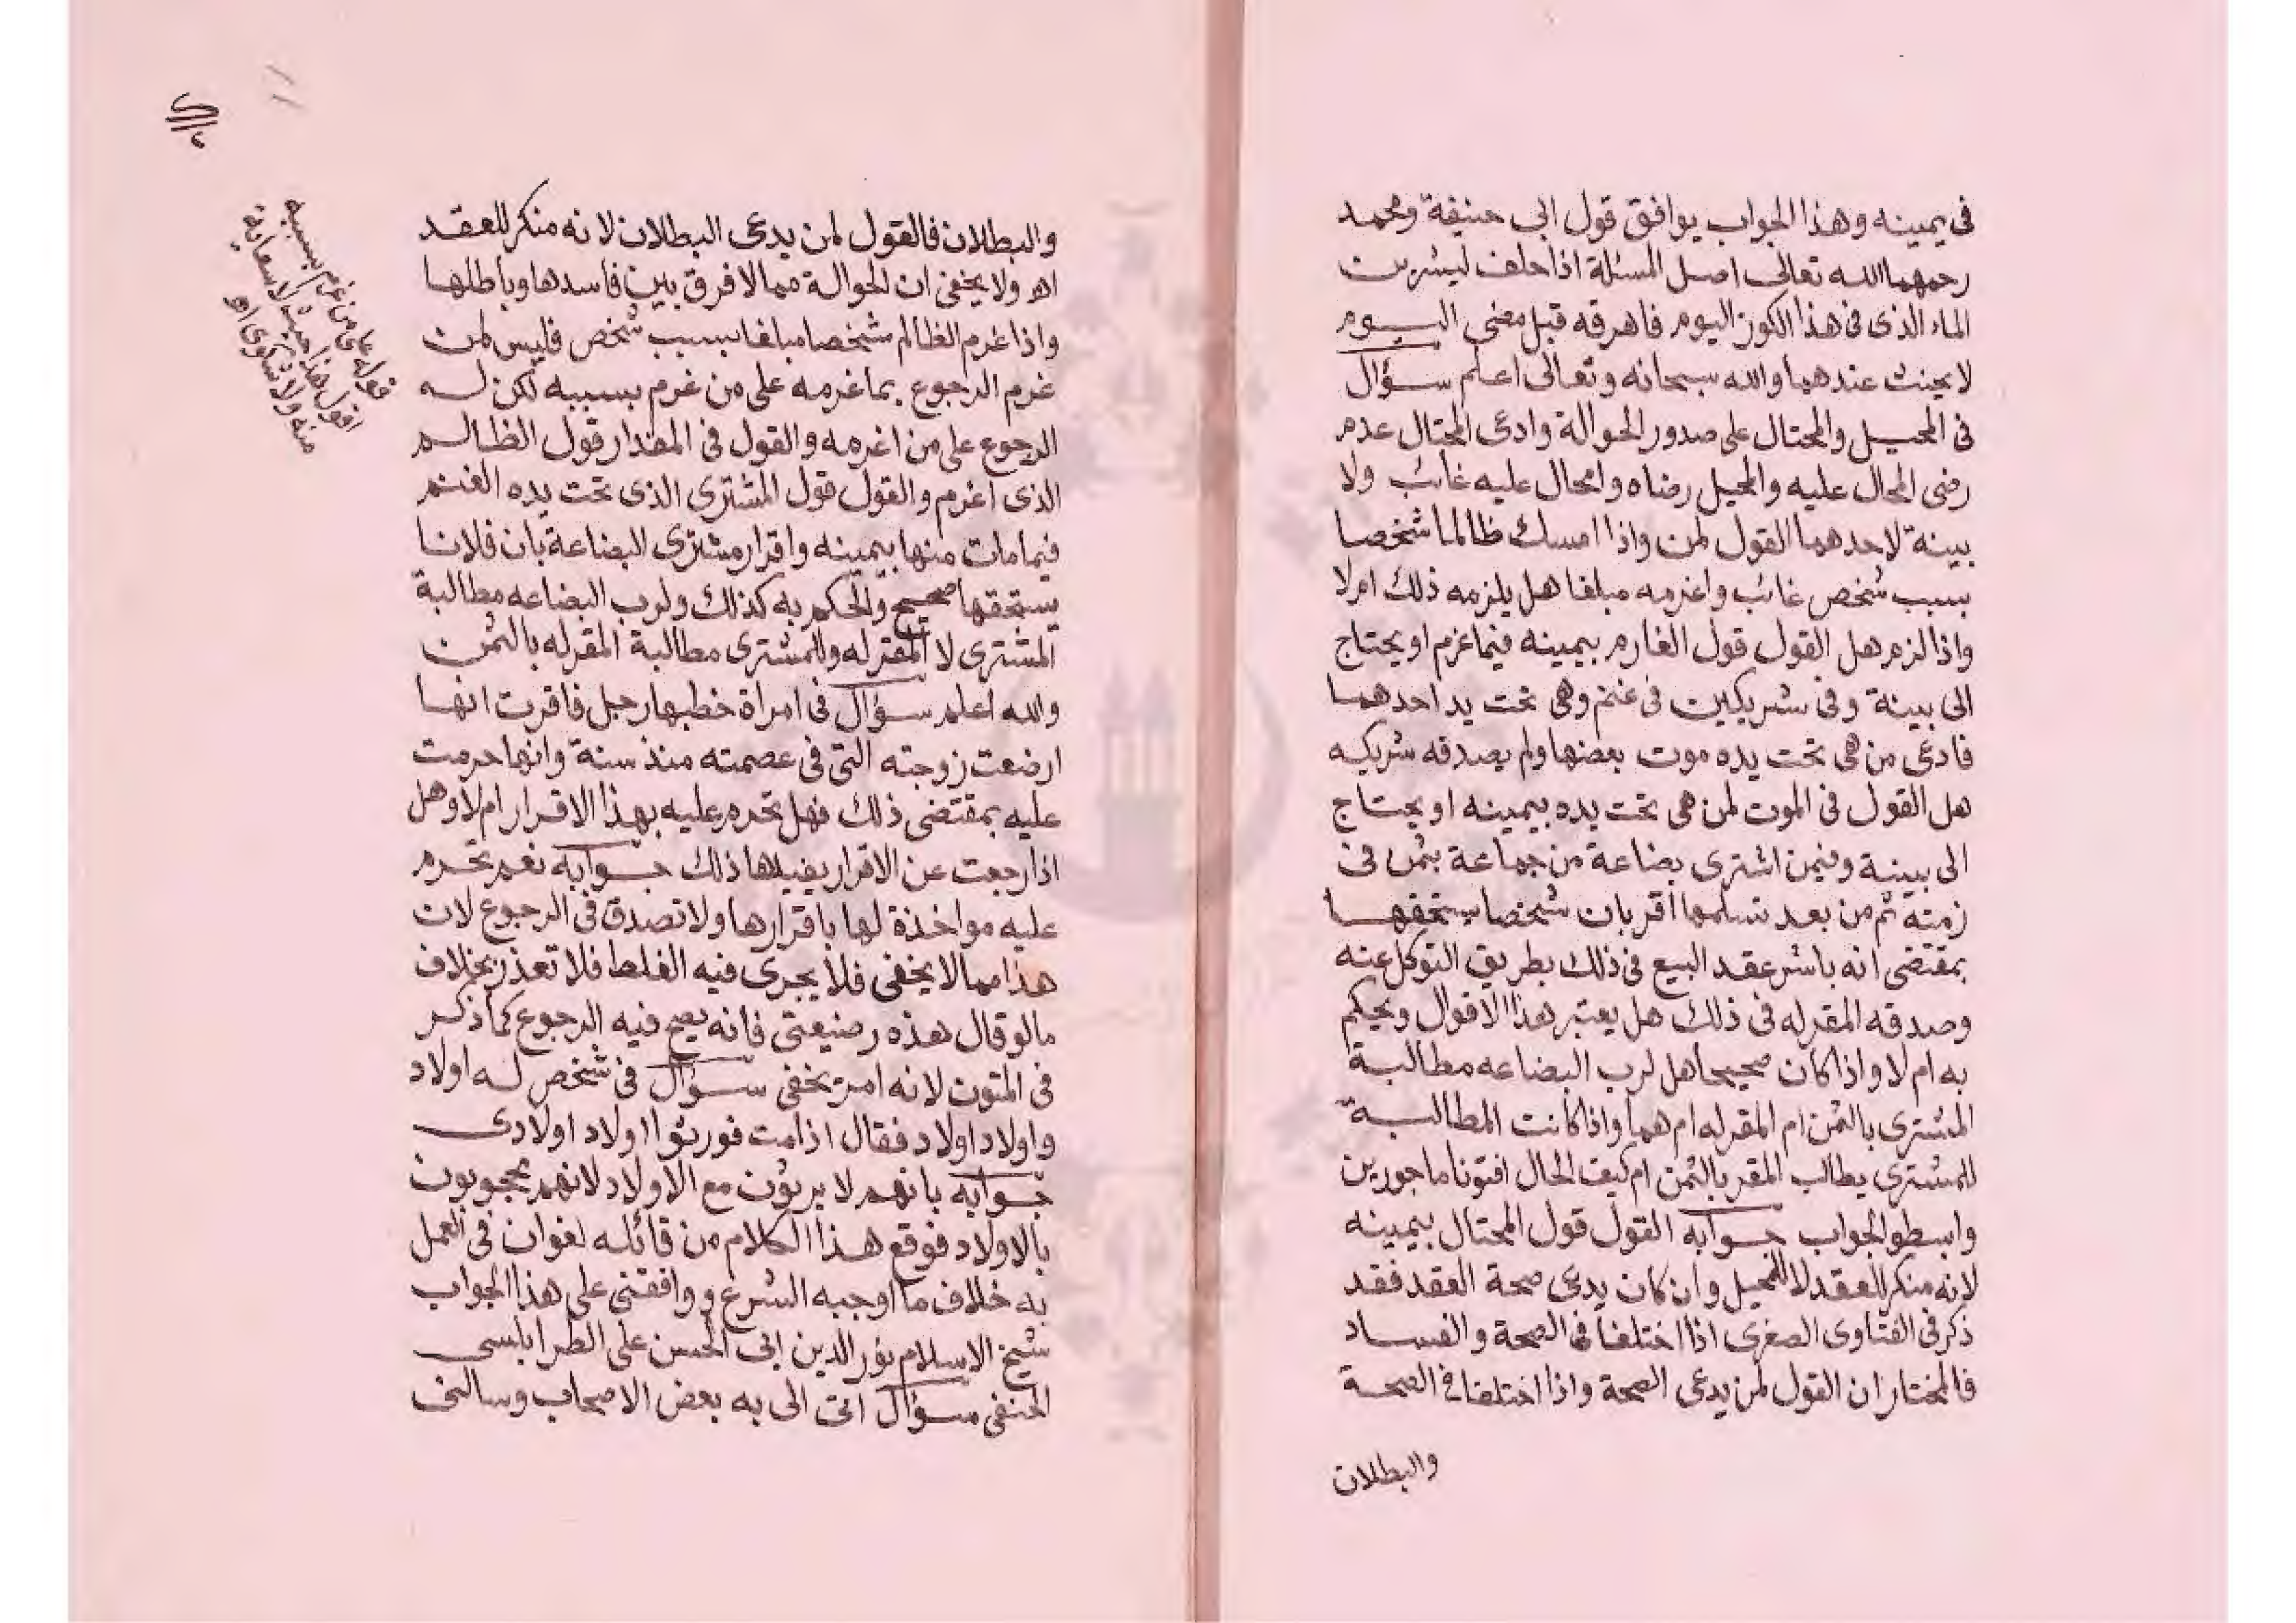 فى يمينه وهذا الجواب يوافق قول ابى حنيفة ومحمد
رحمهما الله تعالى اصل المسئلة اذا حلف ليشربن
الماء الذى فى هذا الكوز اليوم فاهرقه قبل مضى اليوم
لا يحنث عندهما والله سبحانه وتعالى اعلم سؤال
فى المحيل والمحتال على صدور الحوالة وادعى المحتال عدم
رضى المحال عليه والمحيل رضاه والمحال عليه غائب ولا
بينة لاحدهما القول لمن واذا امسك ظالما شخصا
بسبب شخص غائب واغرمه مبلغا هل يلزمه ذلك ام لا
واذا لزم هل القول قول الغارم بيمينه فيما غرم او يحتاج
الى بينة وفى شريكين فى غنم وهى تحت يد احدهما
فادعى من هى تحت يده موت بعضها ولم يصدقه شريكه
هل القول فى الموت لمن هى تحت يده بيمينه او يحتاج
الى بينة وفيمن اشترى بضاعة من جماعة بثمن فى
زمته ثم من بعد تسلمها اقر بان شخصا يستحقها
بمقتضى انه باشر عقد البيع فى ذلك بطريق التوكل عنه
وصدقه المقر له فى ذلك هل يعتبر هذا الاقوال ويحكم
به ام لا واذا كان صحيحا هل لرب البضاعه مطالبة
المشترى بالثمن ام المقر له ام هما واذا كانت المطالبة
للمشترى يطالب المقر بالثمن ام كيف الحال افتونا ماجورين
وابسطوا الجواب جوابه القول قول المحتال بيمينه
لانه منكر للعقد لا للمحيل وان كان يدعى صحة العقد فقد
ذكر فى الفتاوى الصغرى اذا اختلفا فى الصحة والفساد
فالمختار ان القول لمن يدعى الصحة واذا اختلفا فى الصحة
والبطلان
والبطلان فالقول لمن يدعى البطلان لانه منكر للعقد
اهـ ولا يخفى ان الحوالة مما لا فرق بين فاسدها وباطلها
واذا غرم الظالم شخصا مبلغا بسبب شخص فليس لمن
غرم الرجوع بما غرمه على من غرم بسببه لكن له
الرجوع على من اغرمه والقول فى المقدار قول الظالم
الذى اغرم والقول قول المشترى الذى تحت يده الغنم
فيما مات منها بيمينه واقرار مشترى البضاعة بان فلانا
يستحقها صحيح والحكم به كذلك ولرب البضاعه مطالبة
المشترى لا المقر له وللمشترى مطالبة المقر له بالثمن
والله اعلم سؤال فى امراة خطبها رجل فاقرت انها
ارضعت زوجته التى فى عصمته منذ سنة وانها حرمت
عليه بمقتضى ذلك فهل تحرم عليه بهذا الاقرار ام لا وهل
اذا رجعت عن الاقرار يفيدها ذلك جوابه نعم تحرم
عليه مواخذة لها باقرارها ولا تصدق فى الرجوع لان
هذا مما لا يخفى فلا يجرى فيه الغلط فلا تعذر بخلاف
ما لو قال هذه رضيعتى فانه يصح فيه الرجوع كما ذكر
فى المتون لانه امر يخفى سؤال فى شخص له اولاد
واولاد اولاد فقال اذا مت فورثوا اولاد اولادى
جوابه بانهم لا يرثون مع الاولاد لانهم محجوبون
بالاولاد فوقع هذا الكلام من قائله لغوان فى العمل
به خلاف ما اوجبه الشرع ووافقنى على هذا الجواب
شيخ الاسلام نور الدين ابى الحسن على الطرابلسى
الحنفى سؤال اتى الى به بعض الاصحاب وسالنى
قوله على من غرم بسببه
اقول هذا حيث لا سعاية
منه ولا شكوى اهـ